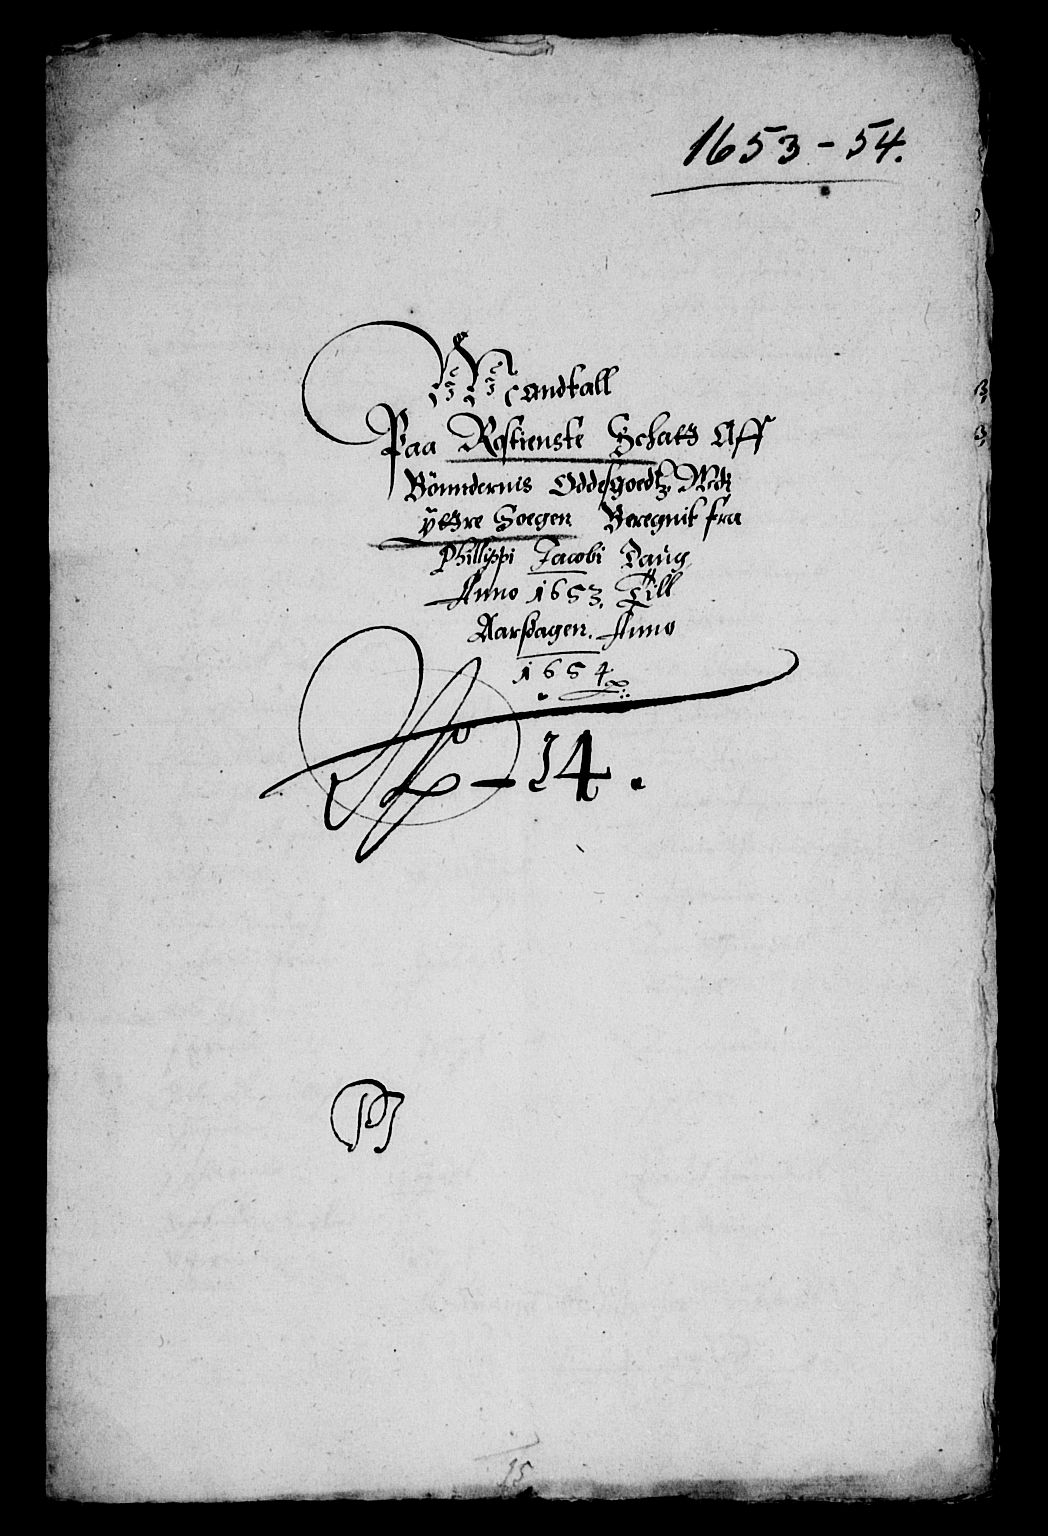 1653-54.
Mandtall
Paa Rostienste Schatz Aff
Bønndernis Oddelsgoedtz
ÿttre Soegen Beregnit fra
Phillippi Jacobi Daug
Anno 1653. Till
Aarsdagen. Anno
1654
14.
15